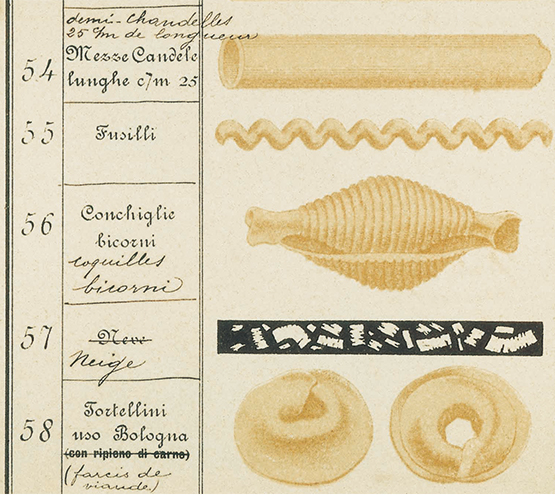 demi-Chandelles
25 c/m de longueur
54 Mezze Candele
lunghe c/m 25
55 Fusilli
56 Conchiglie
bicorni
coquilles
bicorni
57 Neve
Neige
58 Tortellini
uso Bologna
(con ripieno di carne)
(farcis de
viande.)